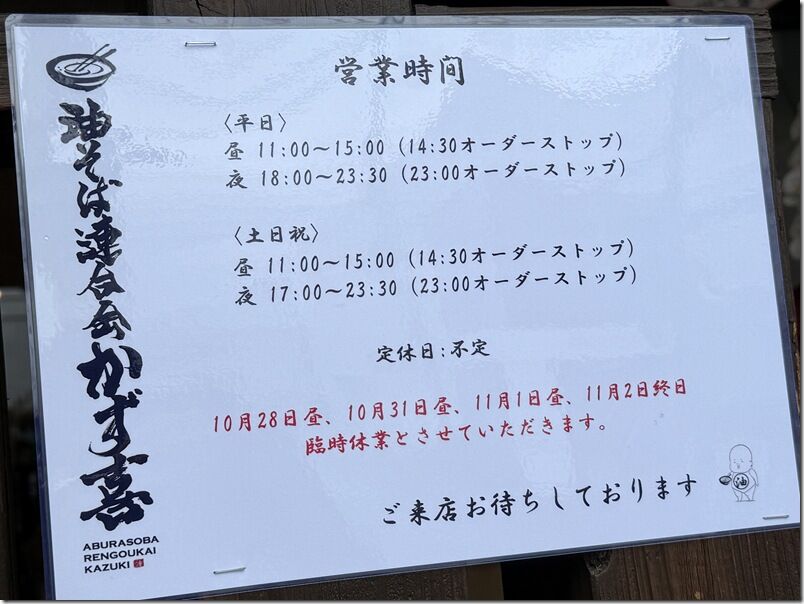 営業時間
〈平日〉
昼 11:00〜15:00（14:30オーダーストップ）
夜 18:00〜23:30（23:00オーダーストップ）
〈土日祝〉
昼 11:00〜15:00（14:30オーダーストップ）
夜 17:00〜23:30（23:00オーダーストップ）
定休日:不定
10月28日昼、10月31日昼、11月1日昼、11月2日終日
臨時休業とさせていただきます。
ご来店お待ちしております
油
油そば連合会かず喜
ABURASOBA
RENGOUKAI
KAZUKI